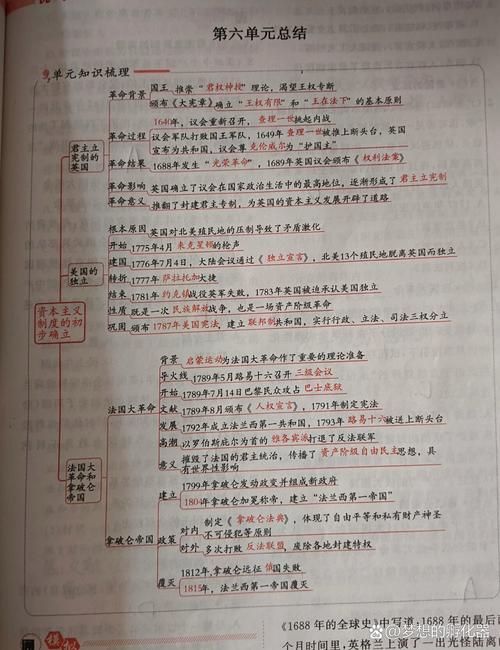 第六单元总结
单元知识梳理
资本主义
制度的初
步确立
君主立
宪制的
英国
革命背景
国王 推崇“君权神授”理论，渴望王权专断
颁布《大宪章》确立“王权有限”和“王在法下”的基本原则
革命过程
1640年，议会重新召开，查理一世挑起内战
议会军队打败国王军队，1649年查理一世被推上断头台，英国
宣布为共和国，议会尊克伦威尔为“护国主”
革命结果
1688年发生“光荣革命”，1689年英国议会颁布《权利法案》
革命影响
英国确立了议会在国家政治生活中的最高地位，逐渐形成了君主立宪制
革命意义
推翻了封建君主专制，为英国的资本主义发展开辟了道路
美国的
独立
根本原因 英国对北美殖民地的压制导致了矛盾激化
开始 1775年4月来克星顿的枪声
建国 1776年7月4日，大陆会议通过《独立宣言》，北美13个殖民地脱离英国而独立
转折 1777年萨拉托加大捷
结束 1781年约克镇战役英军失败，1783年英国被迫承认美国独立
性质 既是一次民族解放战争，也是一场资产阶级革命
巩固 颁布1787年美国宪法，建立联邦制共和国，实行行政、立法、司法三权分立
法国大
革命和
拿破仑
帝国
法国大革命
背景 启蒙运动为法国大革命作了重要的理论准备
导火线 1789年5月路易十六召开三级会议
开始 1789年7月14日巴黎民众攻占巴士底狱
文献 1789年8月颁布《人权宣言》，1791年制定宪法
发展 1792年成立法兰西第一共和国，1793年路易十六被送上断头台
高潮 以罗伯斯庇尔为首的雅各宾派打退了反法联军
意义 摧毁了法国的君主统治，传播了资产阶级自由民主思想，具
有世界性影响
拿破仑帝国
建立
1799年拿破仑发动政变并组成新政府
1804年拿破仑加冕称帝，建立“法兰西第一帝国”
政策
对内 制定《拿破仑法典》，体现了自由平等和私有财产神圣
不可侵犯等原则
对外 多次打败反法联盟，废除各地封建特权
覆灭
1812年，拿破仑远征俄国失败
1815年，法兰西第一帝国覆灭
《1688年的全球史》中写道，1688年的最后
个月时间里，英格兰上演了一出光怪陆离
@梦想的孵化器